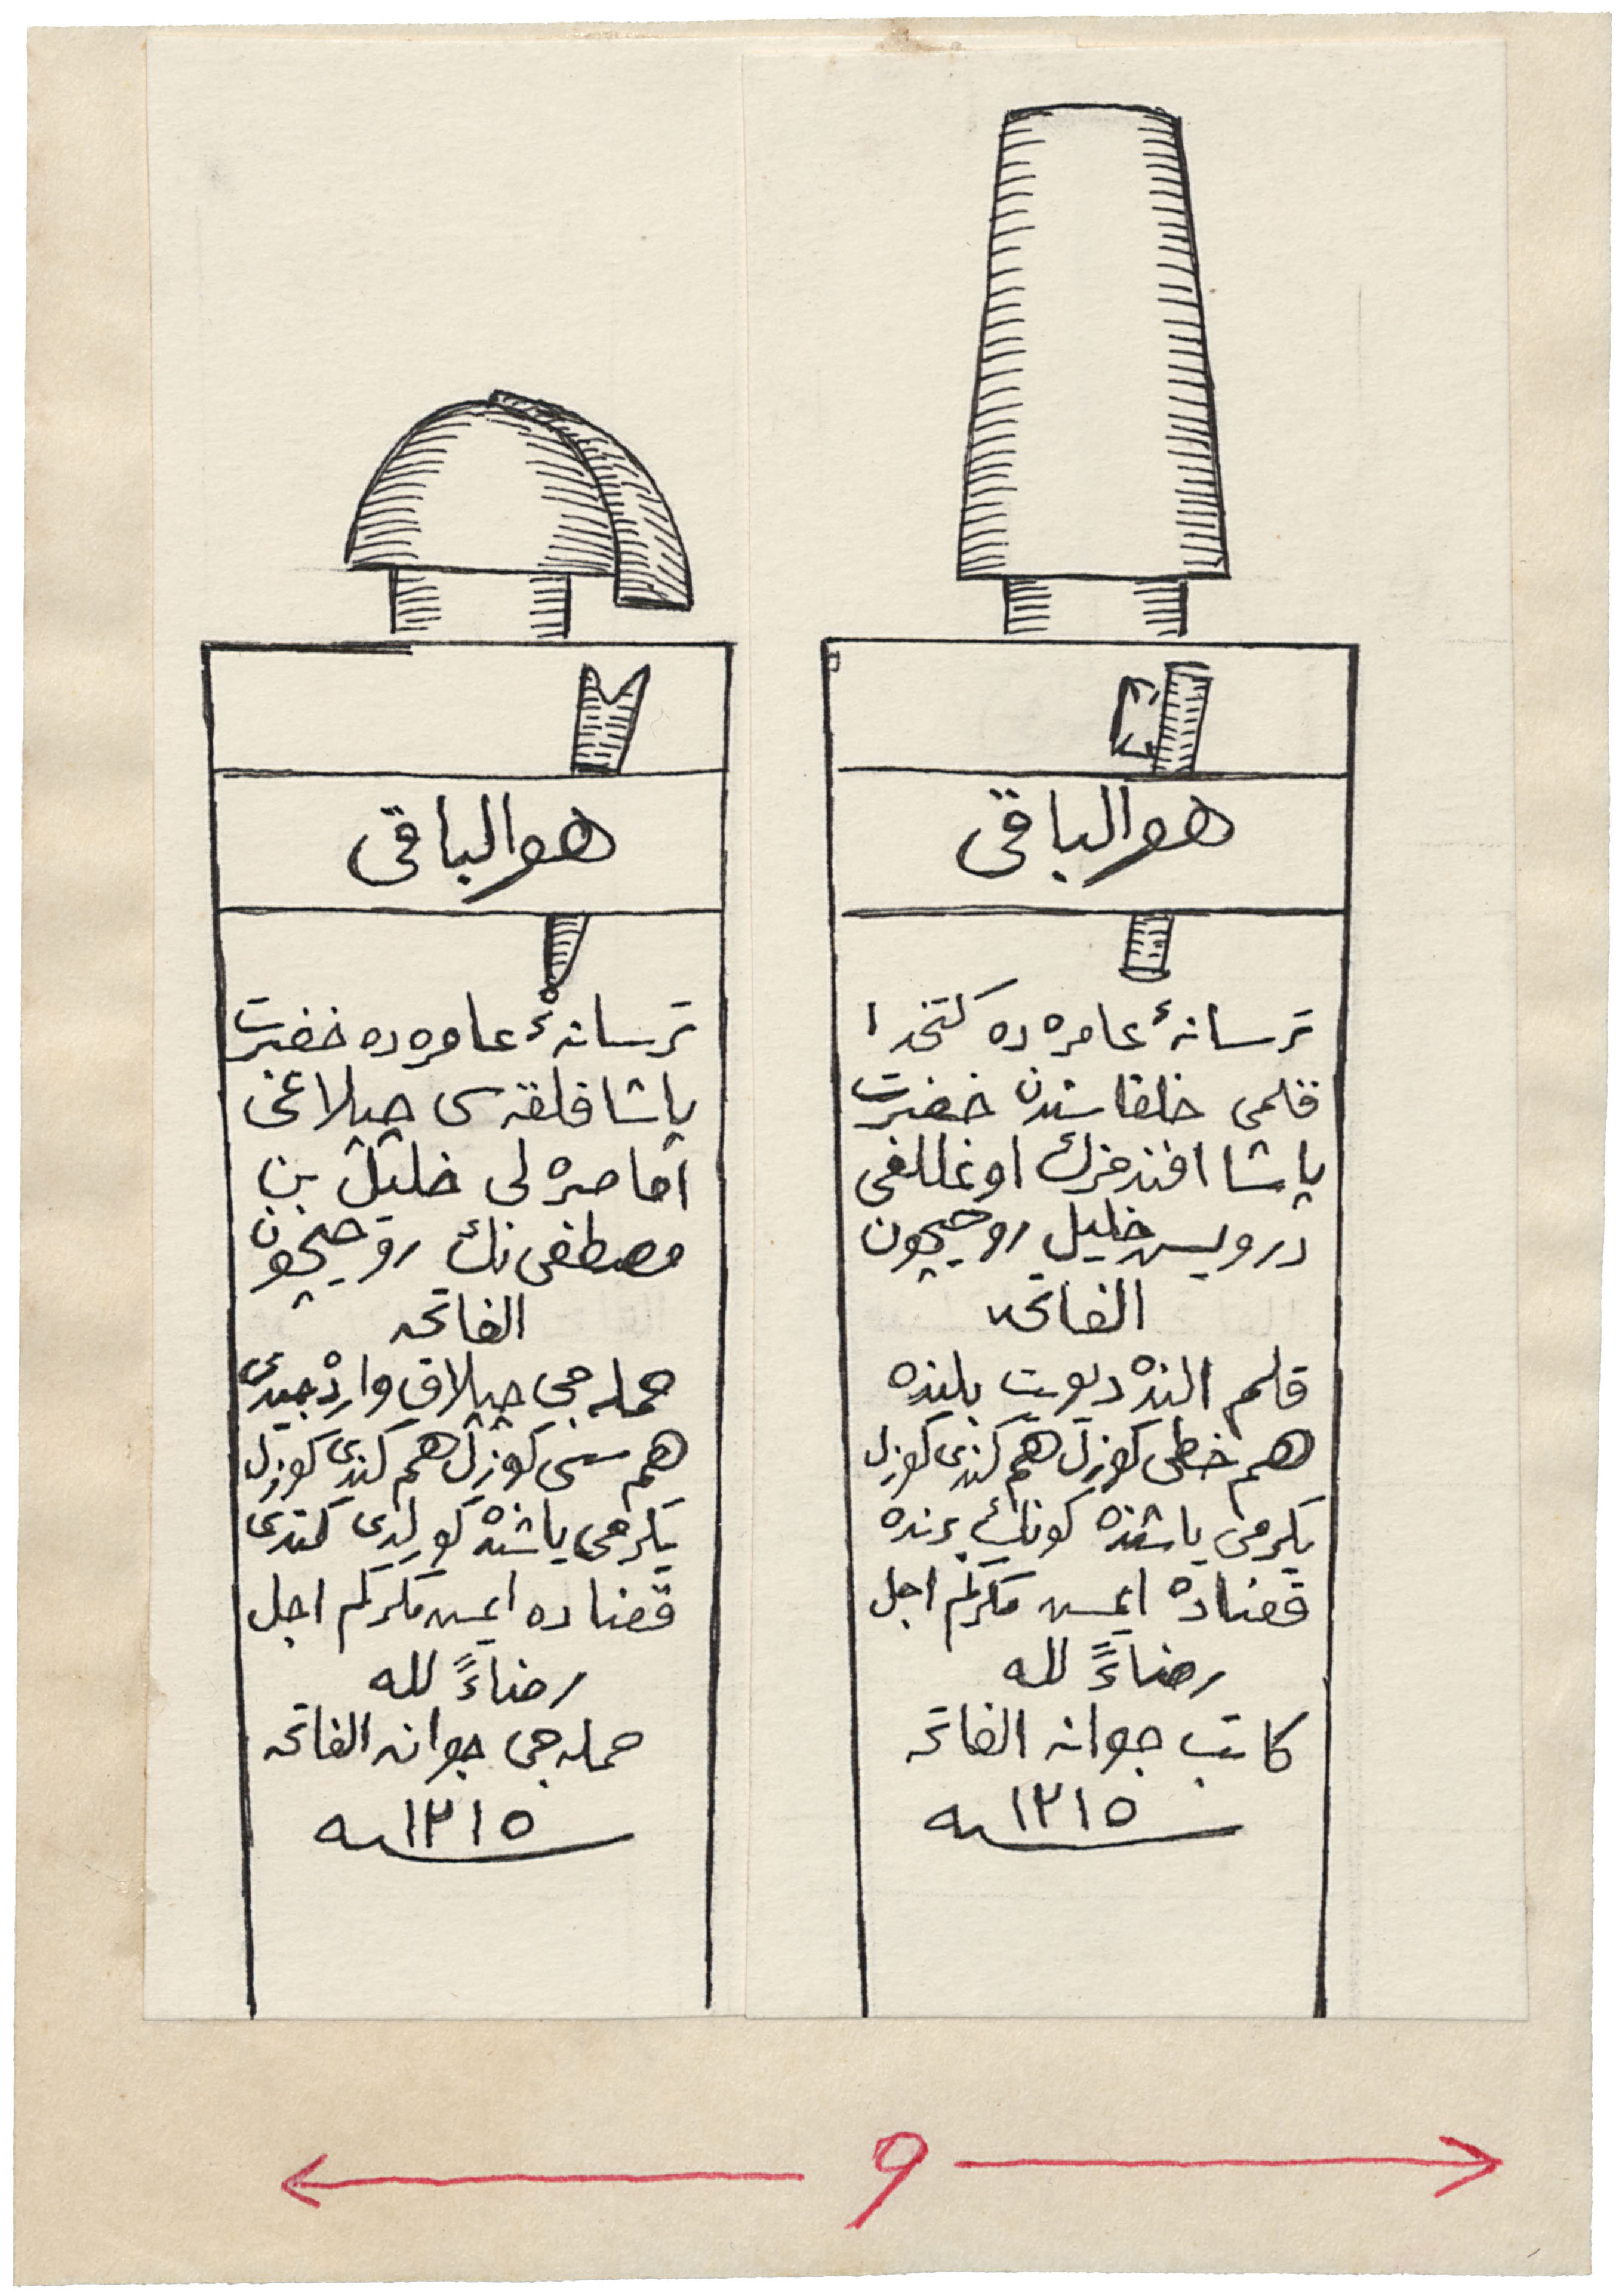 هوالباقی
ترسانهٔ عامره ده کتخدا
قلمی خلفاسندن حضرت
پاشا افندمزك اوغللغی
درویش خلیل روحیچون
الفاتحه
قلم النده دیویت بلنده
هم خطی کوزل هم کندی کوزل
یکرمی یاشنده کونك برنده
قضاده ایمس مکرکم اجل
رضاءً لله
کاتب جوانه الفاتحه
سنه ١٢١٥
هوالباقی
ترسانهٔ عامره ده حضرت
پاشا قلقه سی چپلاغی
اماصره لی خلیل بن
مصطفی نك روحیچون
الفاتحه
حمله جی چپلاق واردجیدی
هم سنی کوزل هم کندی کوزل
یکرمی یاشنده کولدی کتدی
قضاده ایمس مکرکم اجل
رضاءً لله
حمله جی جوانه الفاتحه
سنه ١٢١٥
9